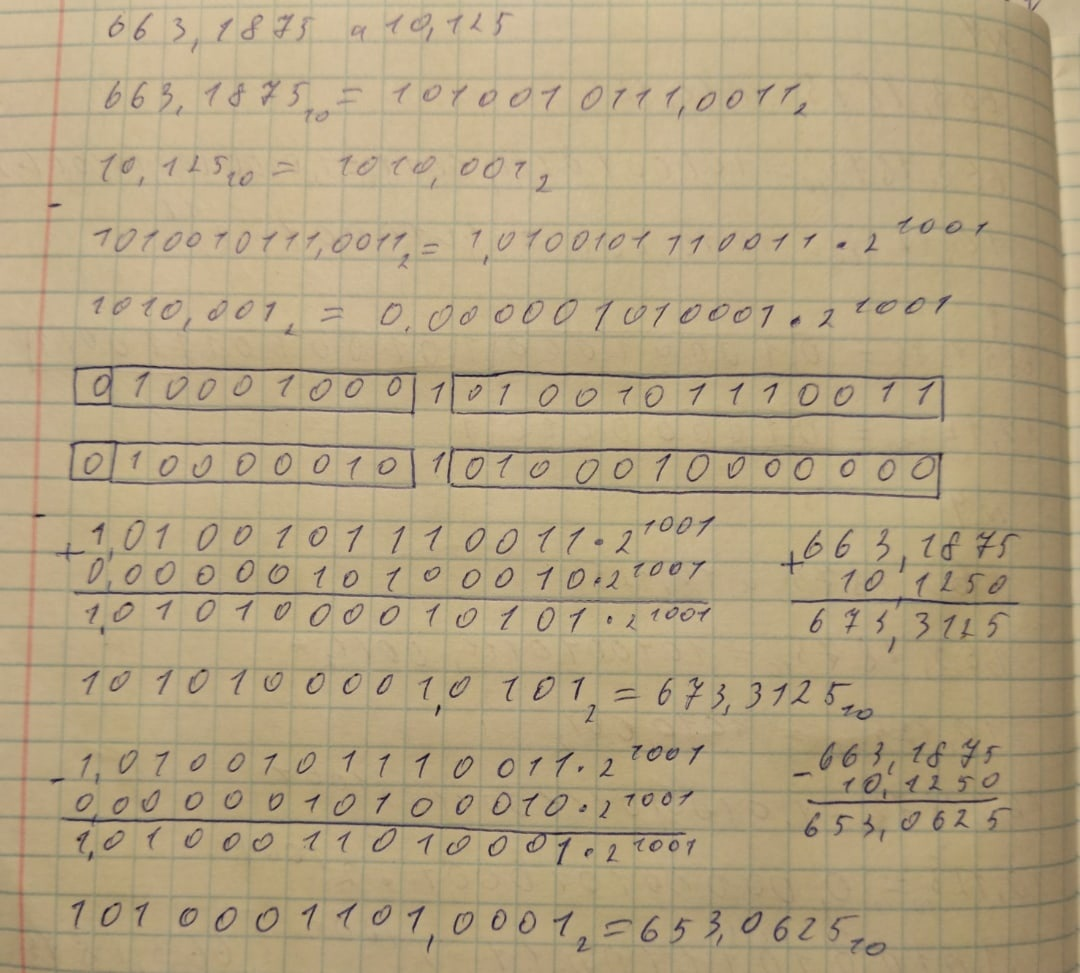 663,1875 и 10,125
663,1875₁₀ = 1010010111,0011₂
10,125₁₀ = 1010,001₂
1010010111,0011₂ = 1,0100101110011 · 2¹⁰⁰¹
1010,001₂ = 0,000001010001 · 2¹⁰⁰¹
0 10001000 1 0100101110011
0 10000010 1 0100010000000
+ 1,0100101110011 · 2¹⁰⁰¹ + 663,1875
0,0000001010010 · 2¹⁰⁰¹ 10,1250
1,0101000010101 · 2¹⁰⁰¹ 673,3125
1010100001,0101₂ = 673,3125₁₀
- 1,0100101110011 · 2¹⁰⁰¹ - 663,1875
0,0000010100010 · 2¹⁰⁰¹ 10,1250
1,0100011010001 · 2¹⁰⁰¹ 653,0625
1010001101,0001₂ = 653,0625₁₀